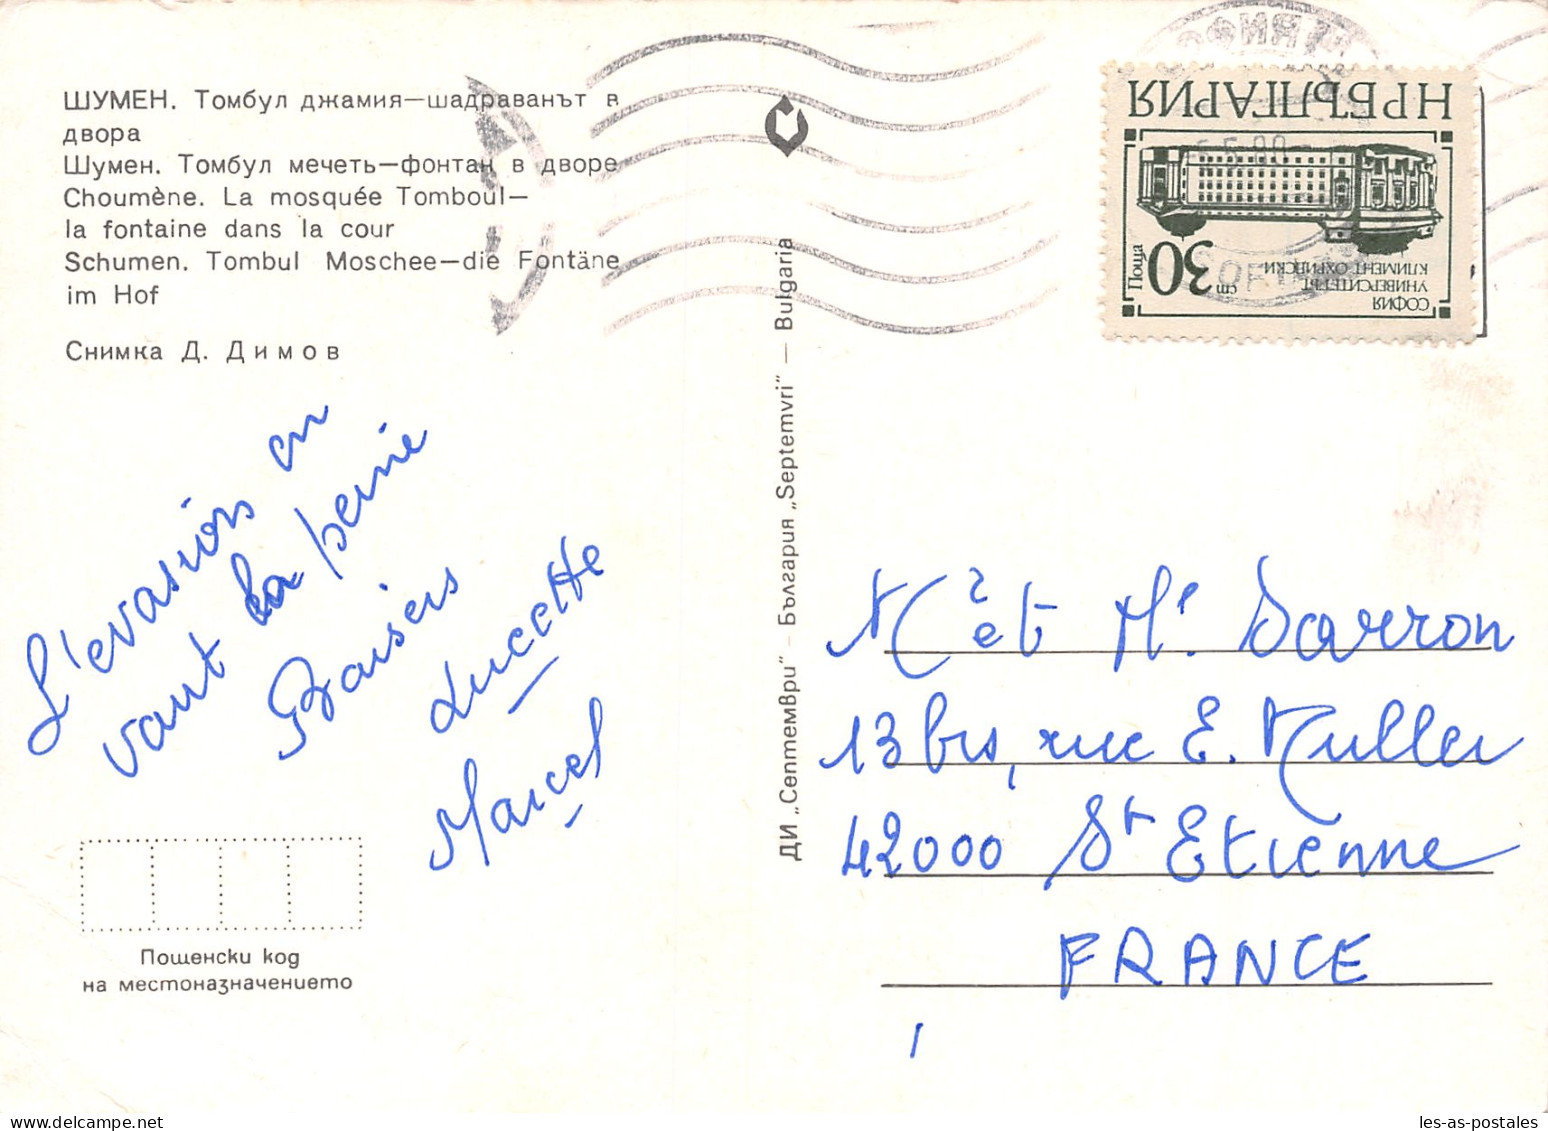 ШУМЕН. Томбул джамия—шадраванът в
двора
Шумен. Томбул мечеть—фонтан в дворе
Choumène. La mosquée Tomboul—
la fontaine dans la cour
Schumen. Tombul Moschee—die Fontäne
im Hof
Снимка Д. Димов
L'evasion en
vaut la peine
Baisers
Lucette
Marcel
Пощенски код
на местоназначението
ДИ „Септември" - България „Septemvri" — Bulgaria
НР БЪЛГАРИЯ
Поща
30 ст
СОФИЯ
УНИВЕРСИТЕТЪТ
КЛИМЕНТ ОХРИДСКИ
et Darron
13 bis, rue E. Muller
42000 St Etienne
FRANCE
les-as-postales